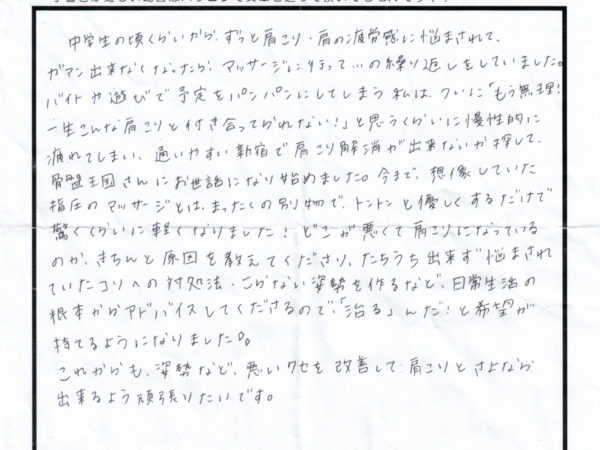 中学生の頃くらいから、ずっと肩こり・肩の疲労感に悩まされて、
ガマン出来なくなったら、マッサージに行って…の繰り返しをしていました。
バイトや遊びで予定をパンパンにしてしまう私は、ついに「もう無理！
一生こんな肩こりと付き合ってられない！」と思うくらいに慢性的に
疲れてしまい、通いやすい新宿で肩こり解消が出来ないか探して、
骨盤王国さんにお世話になり始めました。今まで、想像していた
指圧のマッサージとは、まったくの別物で、トントンと優しくするだけで
驚くくらいに軽くなりました！どこが悪くて肩こりになっている
のか、きちんと原因を教えてくださり、たちうち出来ず悩まされ
ていたコリへの対処法・こらない姿勢を作るなど、日常生活の
根本からアドバイスしてくださるので、「治る」んだ！と希望が
持てるようになりました。
これからも、姿勢など、悪いクセを改善して、肩こりとさよなら
出来るよう頑張りたいです。